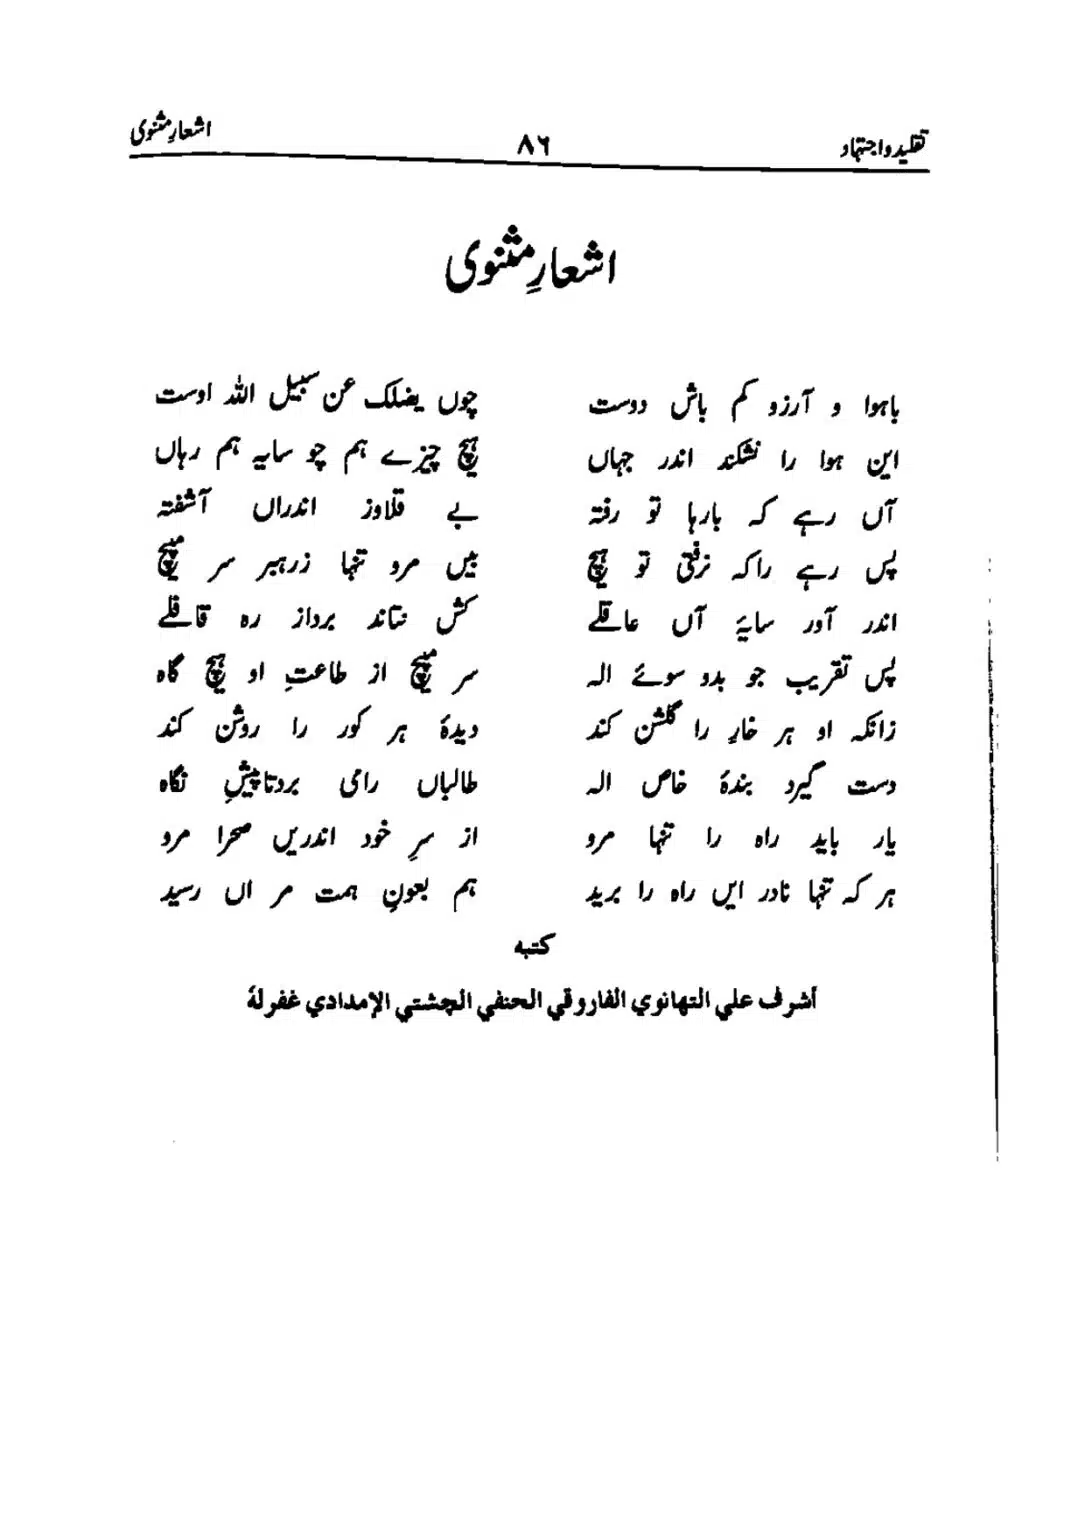 تقلید و اجتہاد ۸۶ اشعارِ مثنوی
اشعارِ مثنوی
باہوا و آرزو کم باش دوست چوں یضلک عن سبیل اللہ اوست
این ہوا را نشکند اندر جہاں ہیچ چیزے ہم چو سایہ ہم رہاں
آں رہے کہ بارہا تو رفتہ بے قلاوز اندراں آشفتہ
پس رہے راکہ نرفتی تو ہیچ بیں مرو تنہا زرہبر سر مپیچ
اندر آور سایۂ آں عاقلے کش نتاند برداز رہ قافلے
پس تقریب جو بدو سوئے الہ سر مپیچ از طاعتِ او ہیچ گاہ
زانکہ او ہر خارِ را گلشن کند دیدۂ ہر کور را روشن کند
دست گیرد بندۂ خاص الہ طالباں رامی بردتاپیشِ نگاہ
یار باید راہ را تنہا مرو از سرِ خود اندریں صحرا مرو
ہر کہ تنہا نادر ایں راہ را برید ہم بعونِ ہمت مر اں رسید
کتبہ
أشرف علي التهانوي الفاروقي الحنفي الچشتي الإمدادي غفرلهٗ